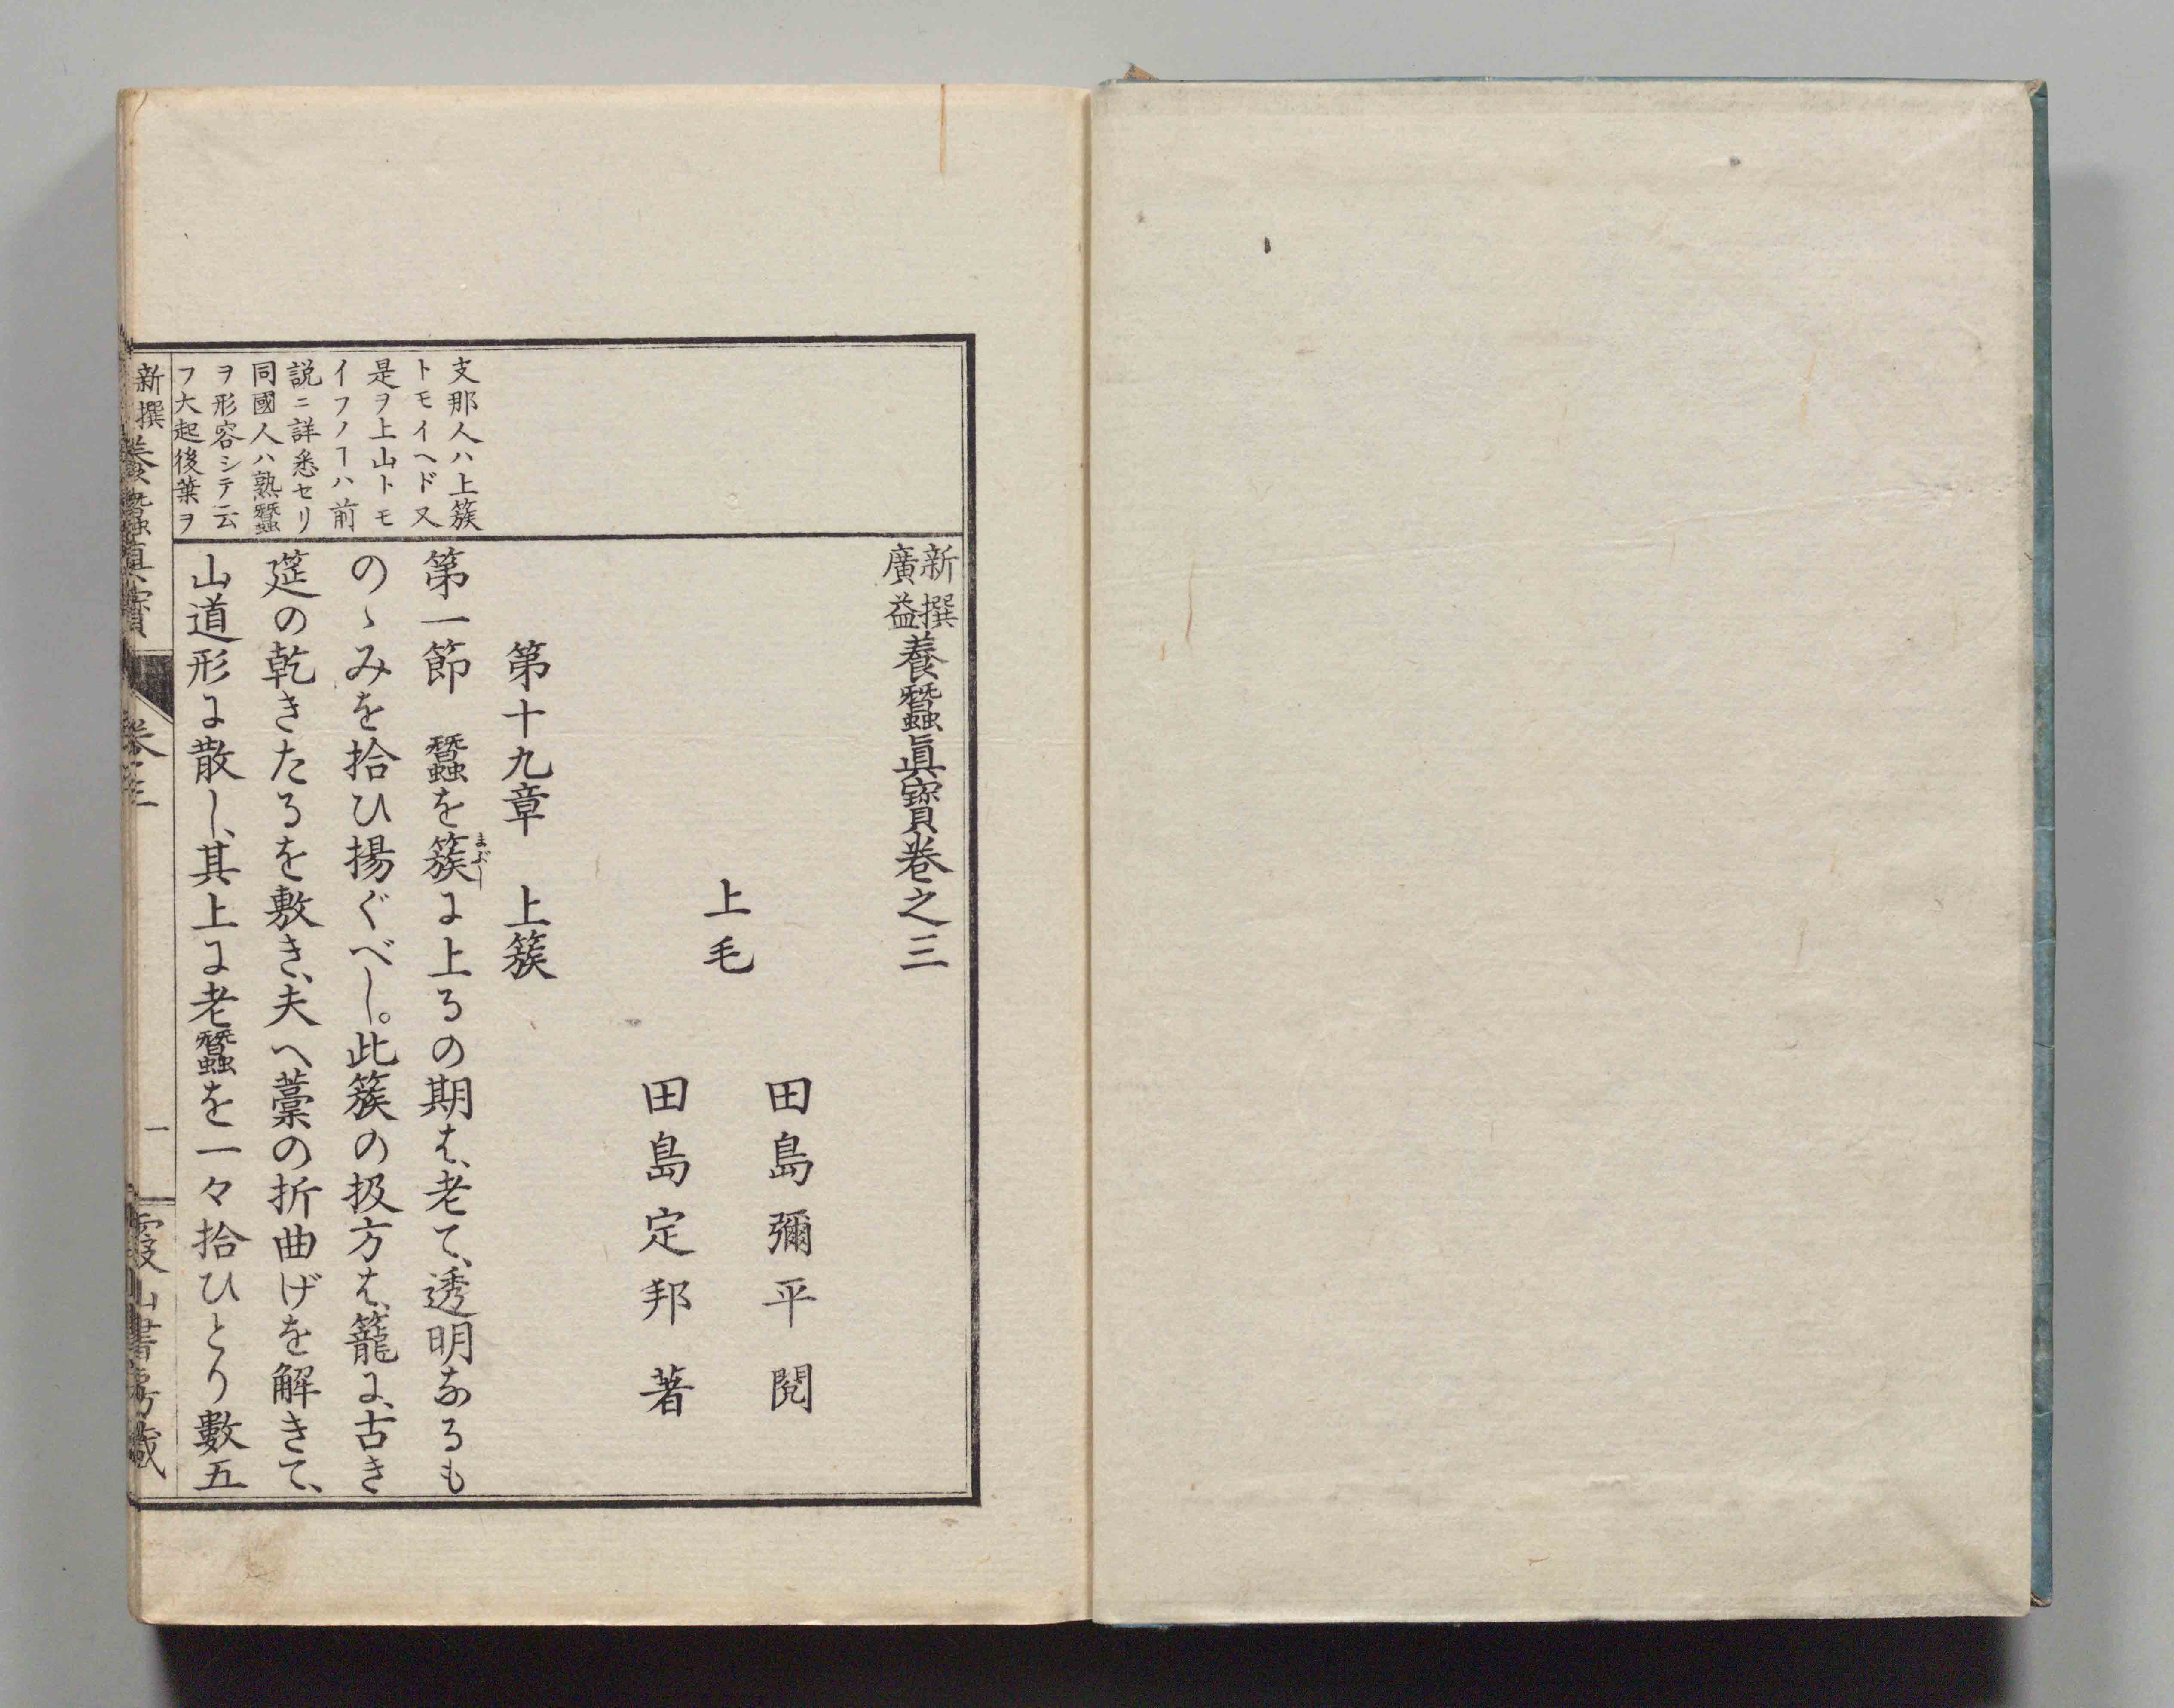 新撰
廣益
養蠶眞寶卷之三
田島彌平閲
上毛
田島定邦著
第十九章　上簇
第一節　蠶を簇に上るの期は、老て、透明なるも
まぶし
のゝみを拾ひ揚ぐべし。此簇の扱方は、籠に、古き
筵の乾きたるを敷き、夫へ藁の折曲げを解きて、
山道形に散し、其上に老蠶を一々拾ひとり數五
支那人ハ上簇
トモイヘド又
是ヲ上山トモ
イフノヿハ前
説ニ詳悉セリ
同國人ハ熟蠶
ヲ形容シテ云
フ大起後葉ヲ
新撰養蠶眞寶
卷三
一
霞山書房藏